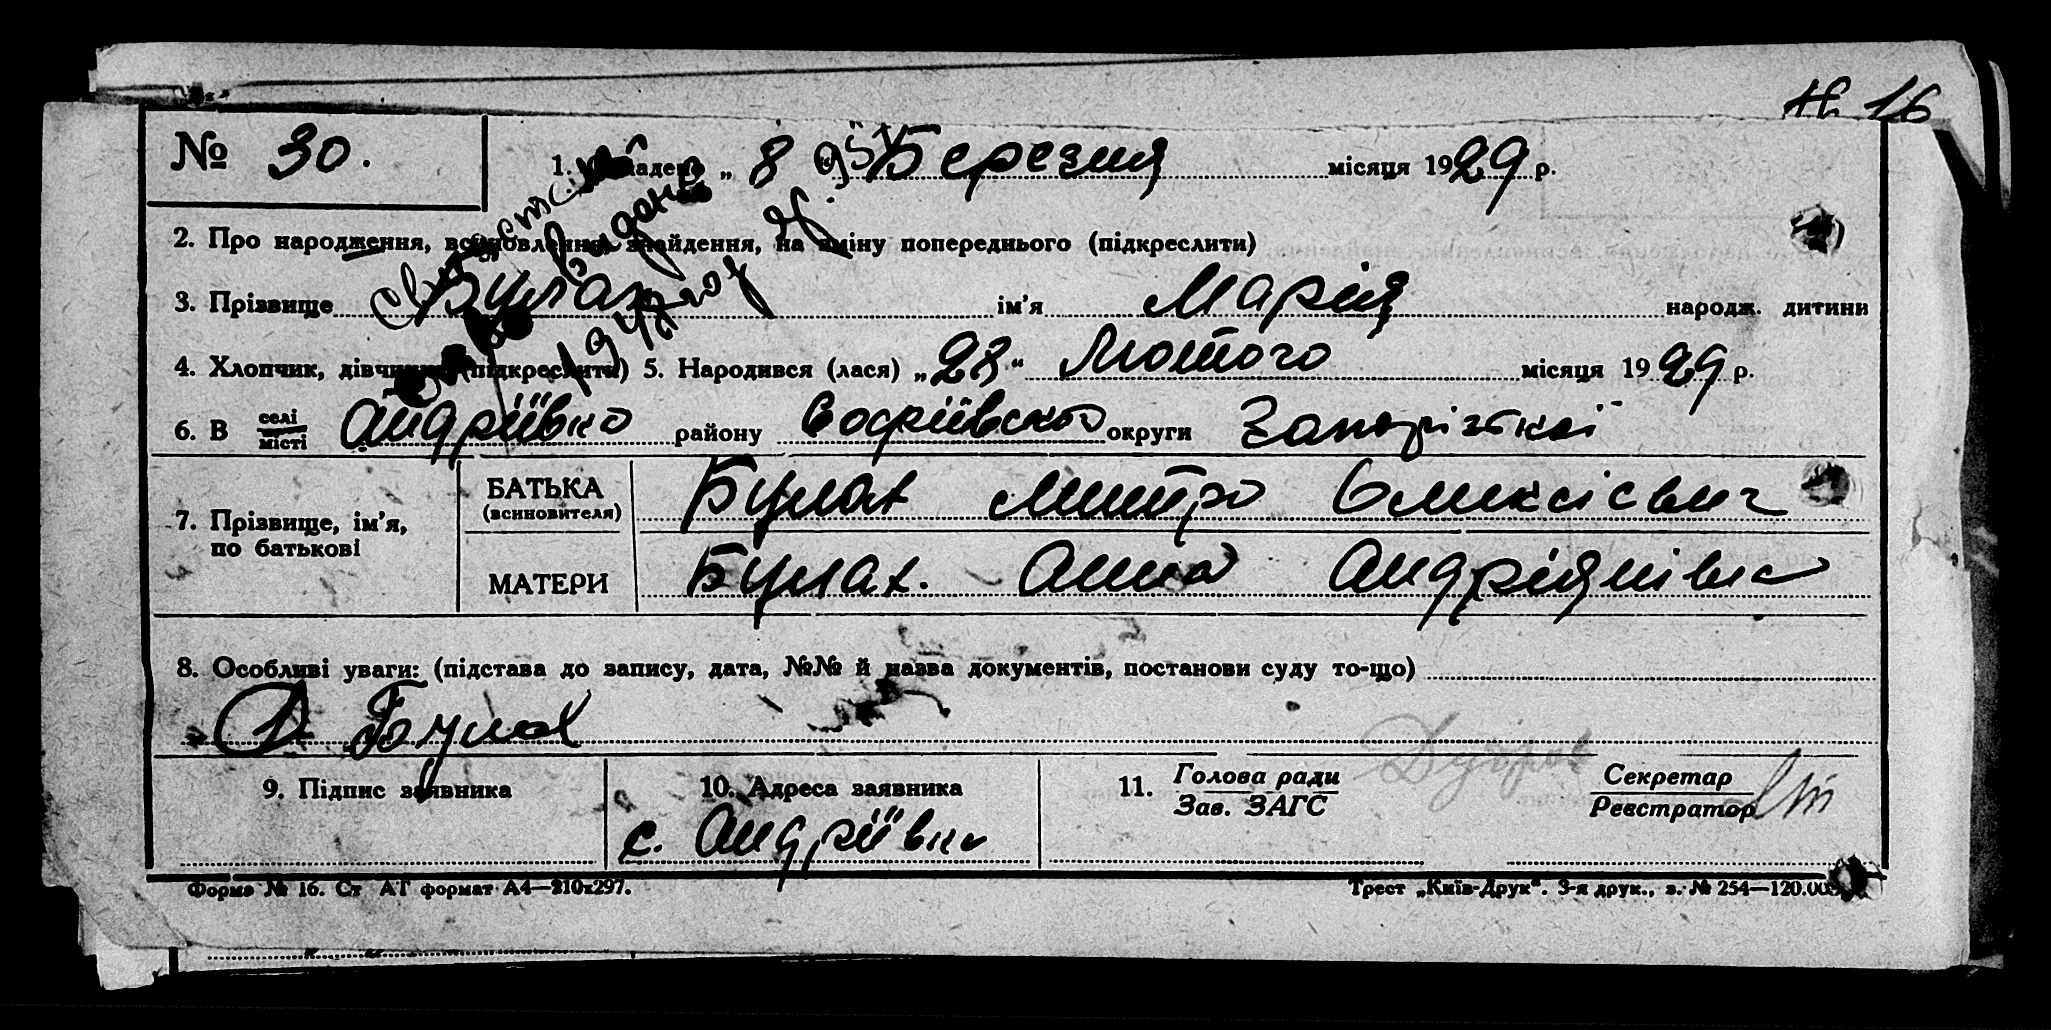 № 30.
1. Складено „ 8 “ Березня місяця 1929 р.
2. Про народження, всиновлення, знайдення, на зміну попереднього (підкреслити)
3. Прізвище Булах ім'я Марія народж. дитини
4. Хлопчик, дівчинка (підкреслити) 5. Народився (лася) „28“ Лютого місяця 1929 р.
6. В селі
місті Андріївка району Софіївського округи Запоріжткої
7. Прізвище, ім'я, по батькові
БАТЬКА (всиновителя) Булах Митро Оликсієвич
МАТЕРИ Булах. Анна Андріянівна
8. Особливі уваги: (підстава до запису, дата, №№ й назва документів, постанови суду то-що)
Д Булах
9. Підпис заявника
10. Адреса заявника
с. Андріївки
11. Голова ради
Зав. ЗАГС
Секретар
Реєстратор
Форма № 16. Ст АГ формат А4—210x297.
Трест „Київ-Друк“. 3-я друк., з. № 254—120.00